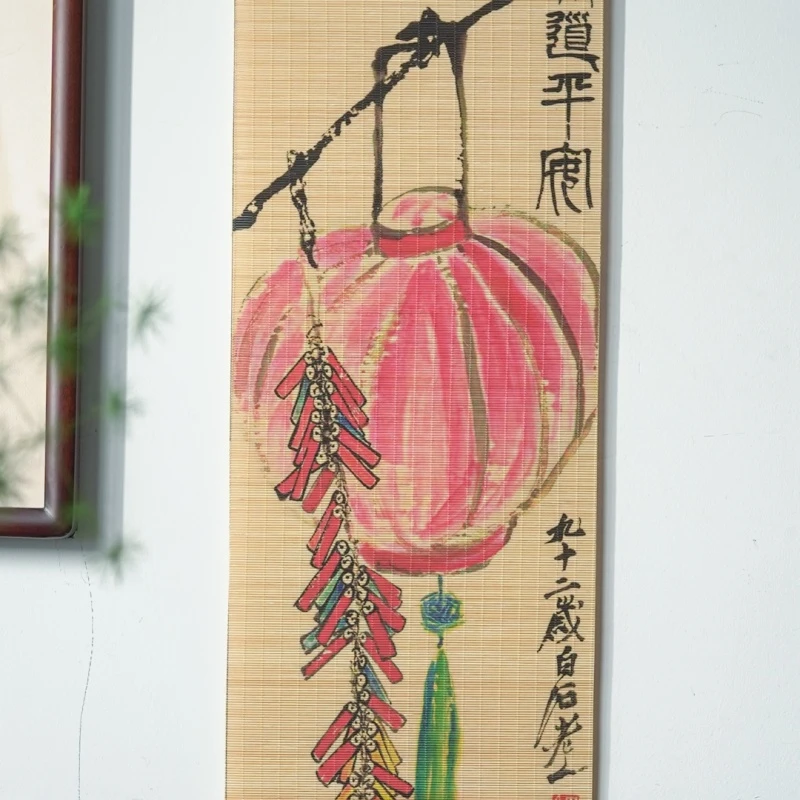 道平安
九十二歲白石老人